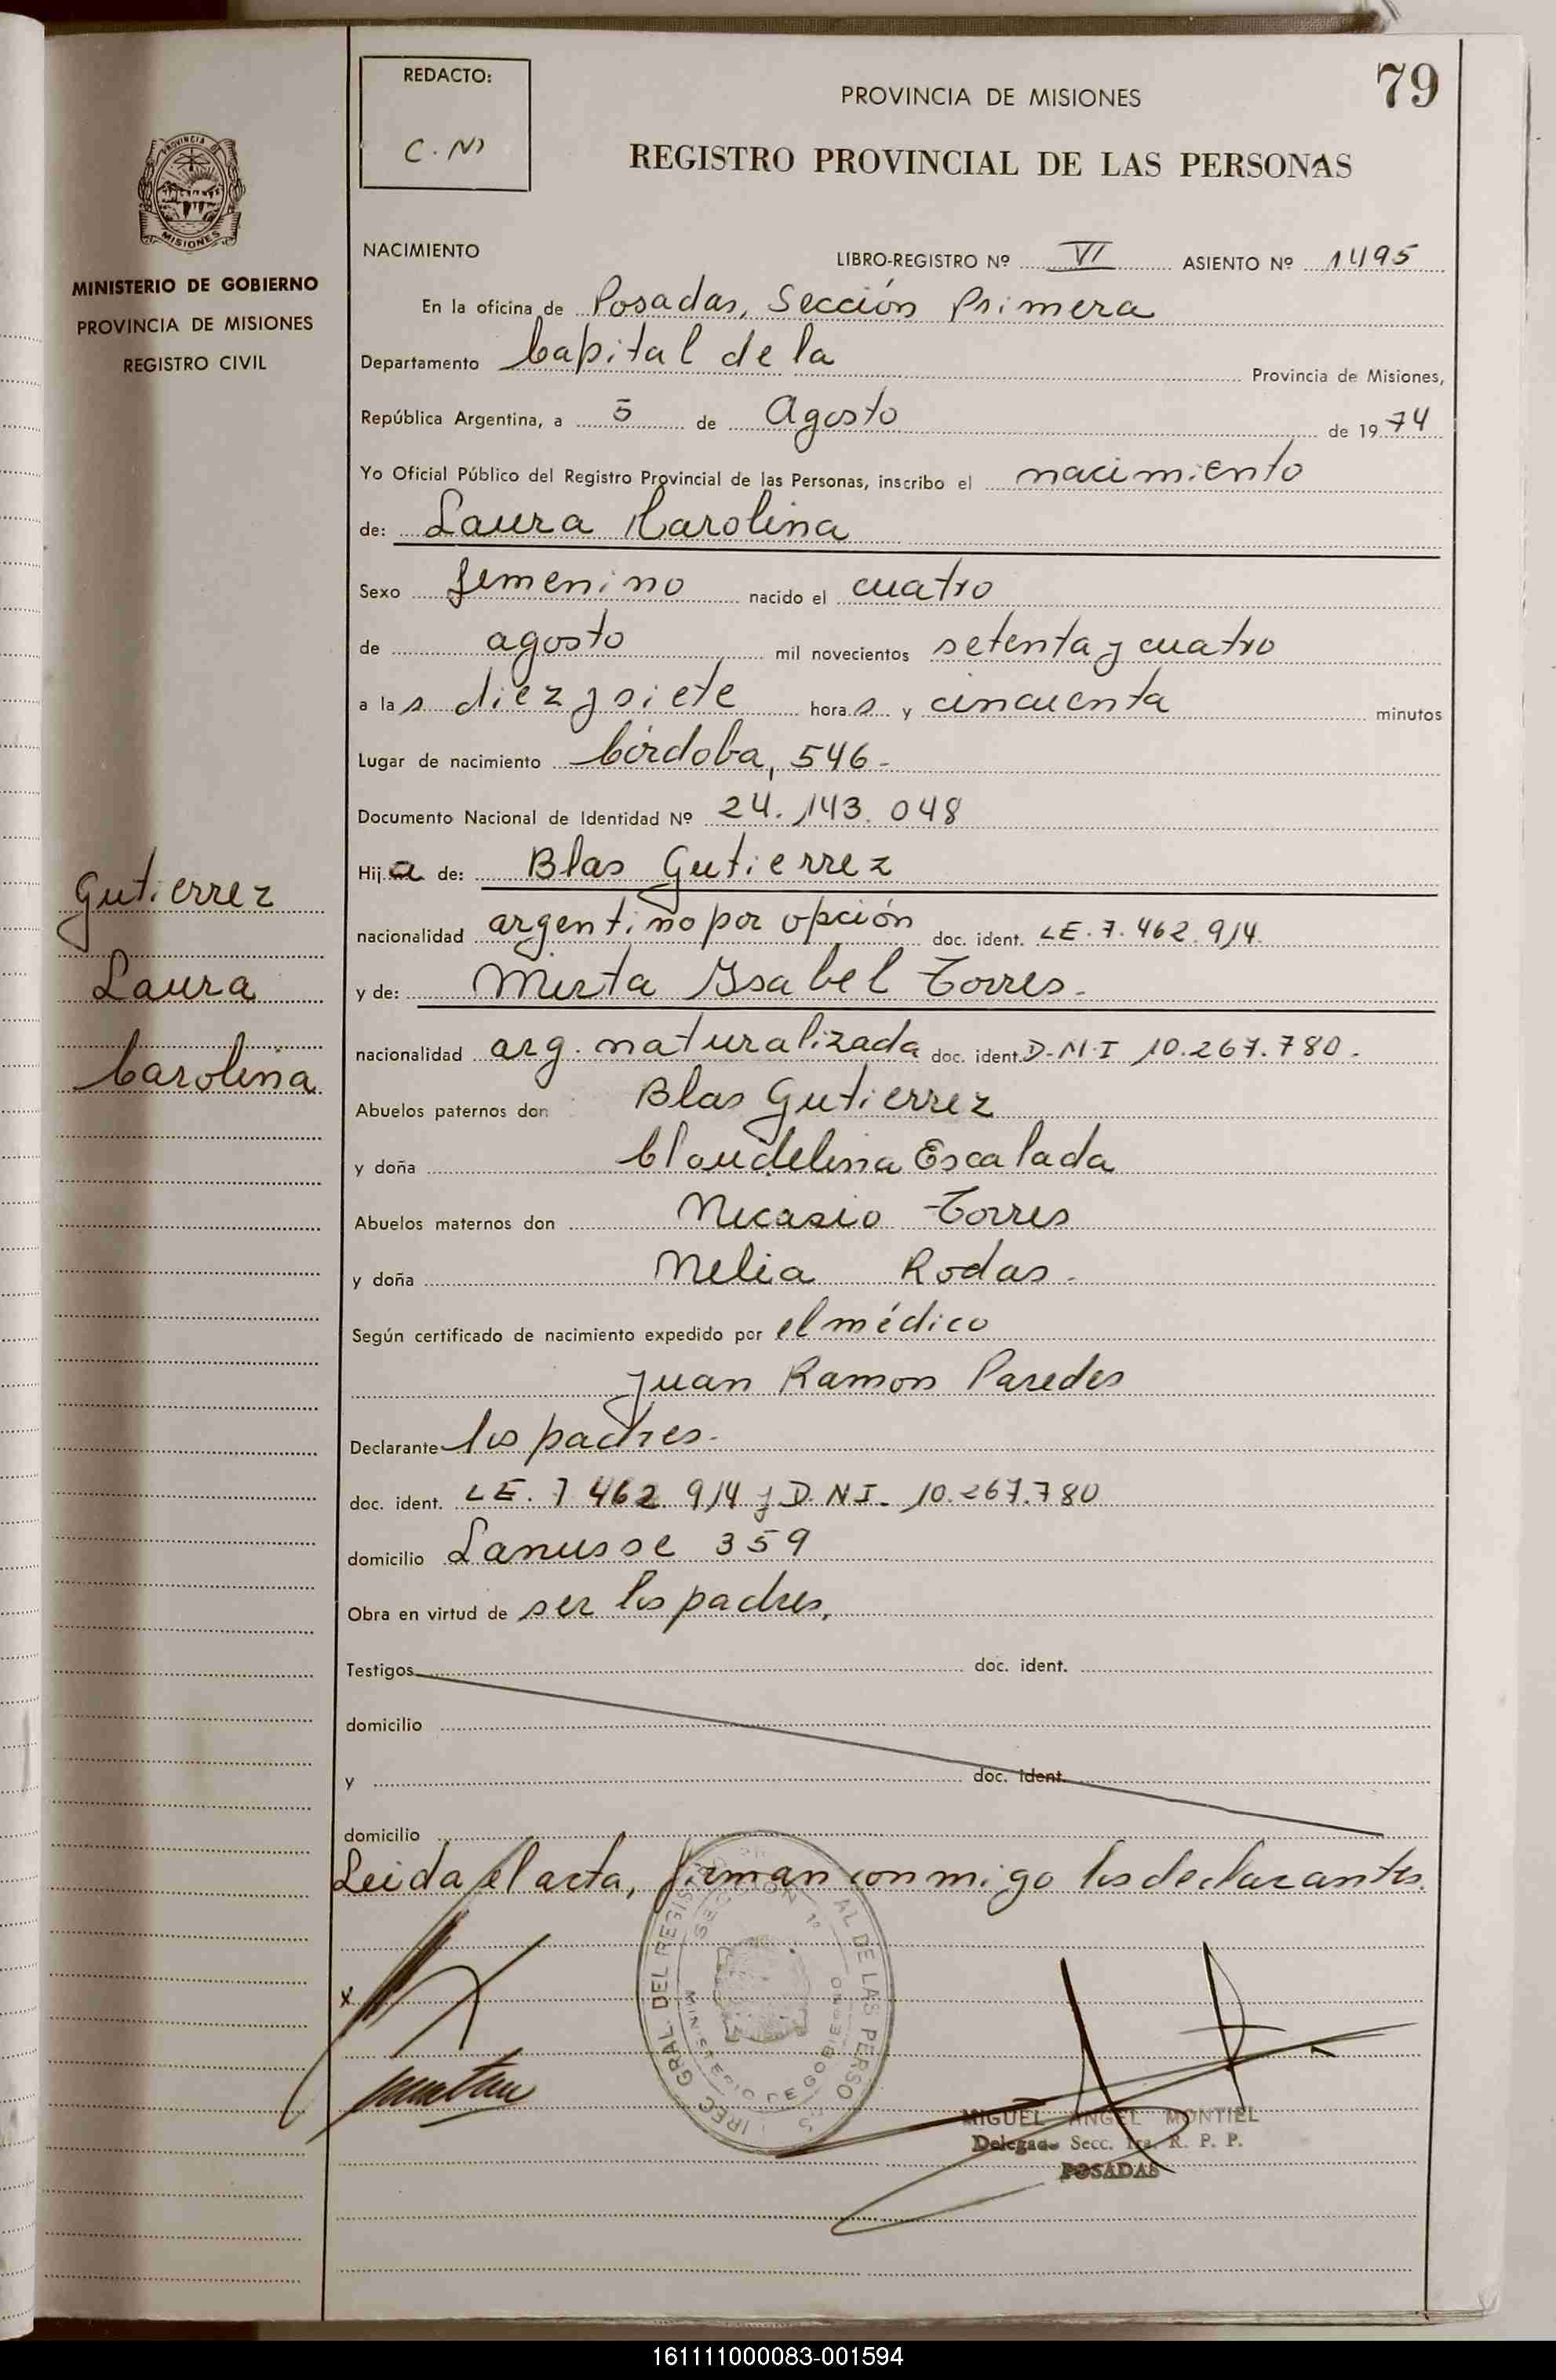 REDACTO:
C. N
79
PROVINCIA DE MISIONES
REGISTRO PROVINCIAL DE LAS PERSONAS
PROVINCIA DE
MISIONES
MINISTERIO DE GOBIERNO
PROVINCIA DE MISIONES
REGISTRO CIVIL
NACIMIENTO LIBRO-REGISTRO Nº VI ASIENTO Nº 1495
En la oficina de Posadas, Sección Primera
Departamento Capital de la Provincia de Misiones,
República Argentina, a 5 de Agosto de 1974
Yo Oficial Público del Registro Provincial de las Personas, inscribo el nacimiento
de: Laura Karolina
Sexo femenino nacido el cuatro
de agosto mil novecientos setenta y cuatro
a las diez y siete horas y cincuenta minutos
Lugar de nacimiento Córdoba, 546-
Documento Nacional de Identidad Nº 24.143.048
Hija de: Blas Gutierrez
nacionalidad argentino por opción doc. ident. LE. 7.462.914
y de: Mirta Ysabel Torres.
nacionalidad arg. naturalizada doc. ident. D-N-I 10.267.780.
Abuelos paternos don Blas Gutierrez
y doña Claudelina Escalada
Abuelos maternos don Nicasio Torres
y doña Nelia Rodas.
Según certificado de nacimiento expedido por el médico
Juan Ramon Paredes
Declarante los padres.
doc. ident. LE. 7 462 914 y D.N.I. 10.267.780
domicilio Lanusse 359
Obra en virtud de ser los padres,
Testigos doc. ident.
domicilio
y doc. ident.
domicilio
Leida el acta, firman conmigo los declarantes.
Gutierrez
Laura
Carolina
x
DIREC. GRAL. DEL REGIS AL DE LAS PERSO S
SECCION 1ª
MINISTERIO DE GOBIERNO
MIGUEL ANGEL MONTIEL
Delegado Secc. 1ra. R. P. P.
POSADAS
161111000083-001594